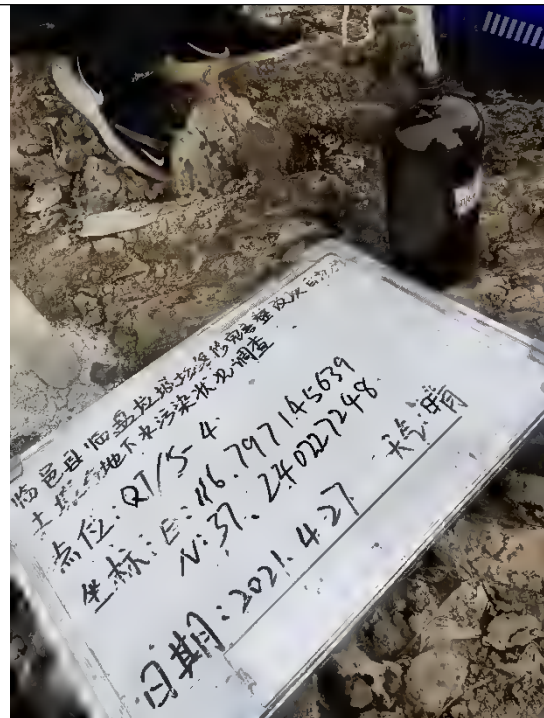 临邑县临盘垃圾填埋场完善整改项目
土壤与地下水污染状况调查
点位:QT/S-4
坐标:E:116.797145639
N:37.240227248
日期:2021.4.27 天气:晴